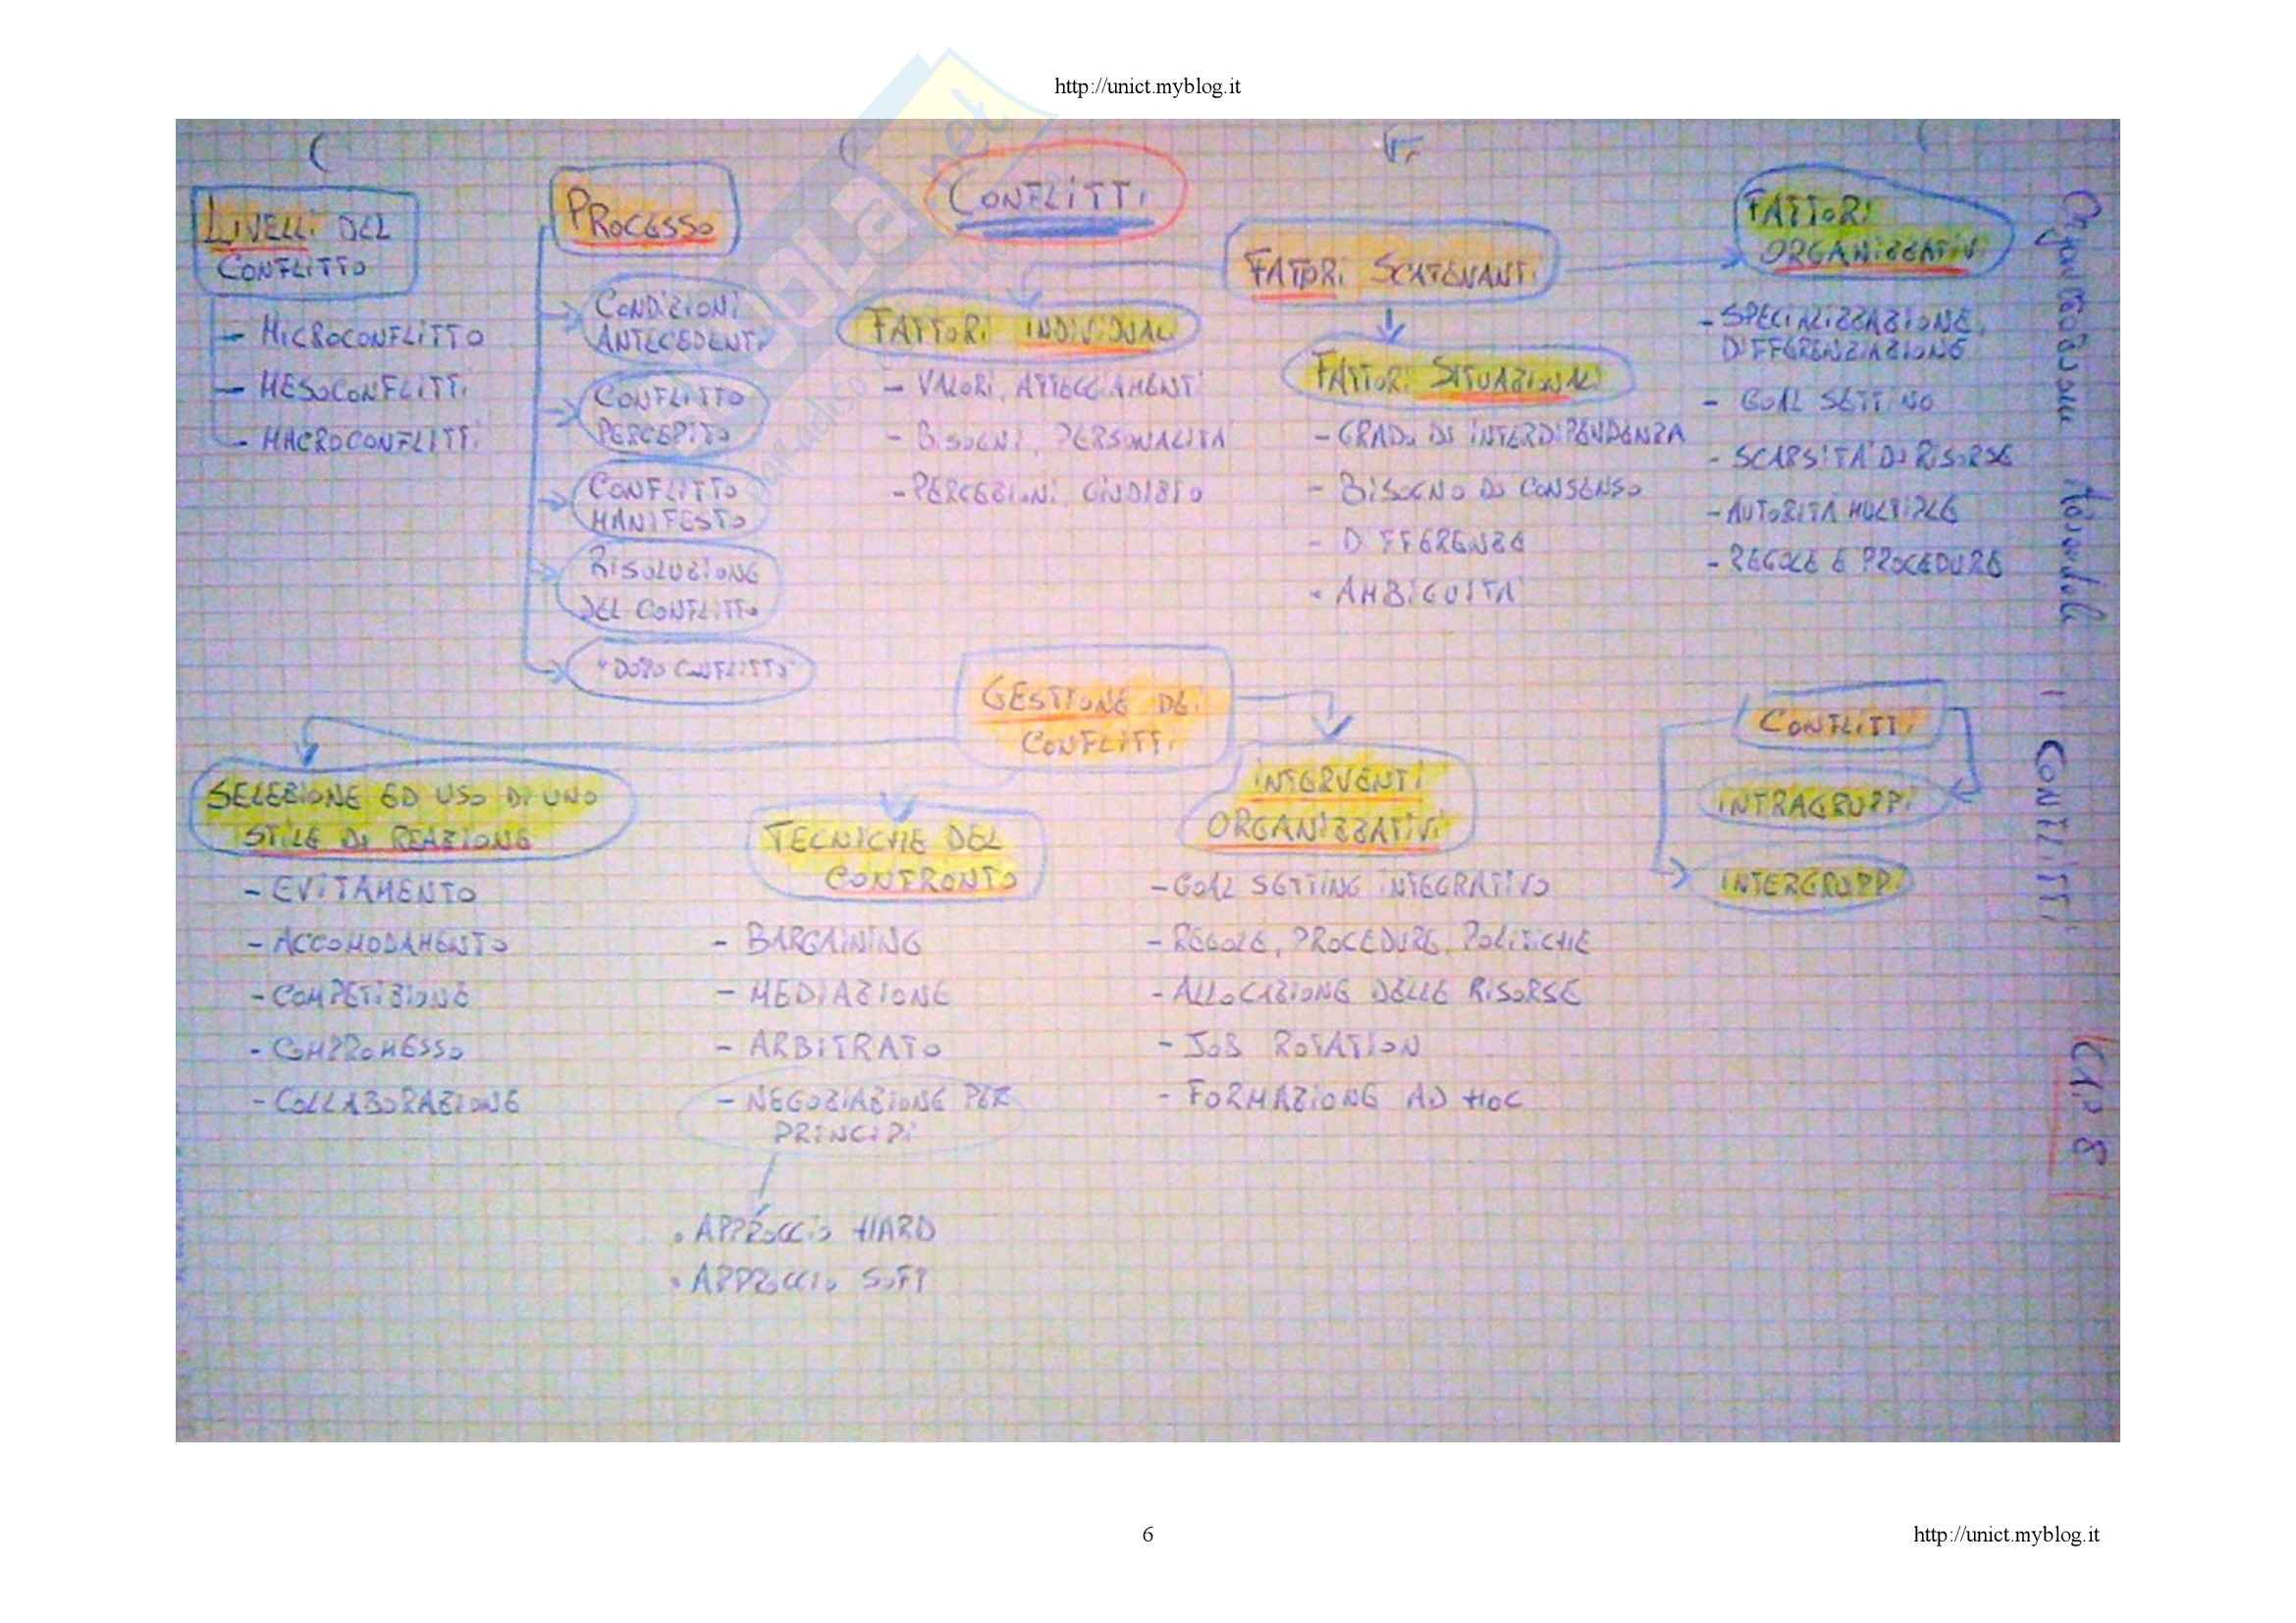 http://unict.myblog.it
CONFLITTI
LIVELLI DEL
CONFLITTO
- MICROCONFLITTO
- MESOCONFLITTI
- MACROCONFLITTI
PROCESSO
CONDIZIONI
ANTECEDENTI
CONFLITTO
PERCEPITO
CONFLITTO
MANIFESTO
RISOLUZIONE
DEL CONFLITTO
"DOPO CONFLITTO"
FATTORI SCATENANTI
FATTORI INDIVIDUALI
- VALORI, ATTEGGIAMENTI
- BISOGNI, PERSONALITÀ
- PERCEZIONI, GIUDIZIO
FATTORI SITUAZIONALI
- GRADO DI INTERDIPENDENZA
- BISOGNO DI CONSENSO
- DIFFERENZE
- AMBIGUITÀ
FATTORI
ORGANIZZATIVI
- SPECIALIZZAZIONE,
DIFFERENZIAZIONE
- GOAL SETTING
- SCARSITÀ DI RISORSE
- AUTORITÀ MULTIPLE
- REGOLE E PROCEDURE
GESTIONE DEI
CONFLITTI
SELEZIONE ED USO DI UNO
STILE DI REAZIONE
- EVITAMENTO
- ACCOMODAMENTO
- COMPETIZIONE
- COMPROMESSO
- COLLABORAZIONE
TECNICHE DEL
CONFRONTO
- BARGAINING
- MEDIAZIONE
- ARBITRATO
- NEGOZIAZIONE PER
PRINCIPI
• APPROCCIO HARD
• APPROCCIO SOFT
INTERVENTI
ORGANIZZATIVI
- GOAL SETTING INTEGRATIVO
- REGOLE, PROCEDURE, POLITICHE
- ALLOCAZIONE DELLE RISORSE
- JOB ROTATION
- FORMAZIONE AD HOC
CONFLITTI
INTRAGRUPPI
INTERGRUPPI
Organizzazione Aziendale I CONFLITTI CAP 8
6
http://unict.myblog.it